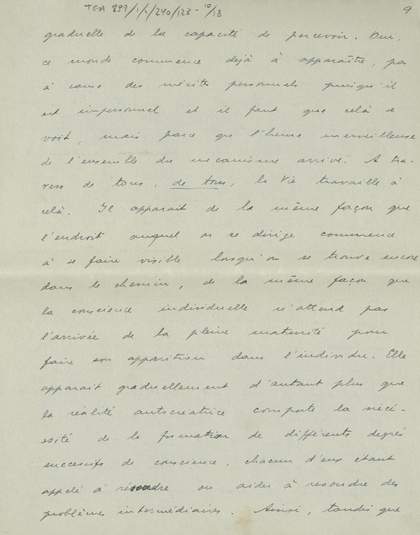 TGA 899/1/2/240/123-10/18
9
graduelle de la capacité de percevoir. Oui,
ce monde commence déjà à apparaître, pas
à cause des mérites personnels puisqu'il
est impersonnel et il faut que cela se
voit, mais parce que l'heure merveilleuse
de l'ensemble du mécanisme arrive. A tra-
vers de tous, de tous, la Vie travaille à
celà. Il apparait de la même façon que
l'endroit auquel on se dirige commence
à se faire visible lorsqu'on se trouve encore
dans le chemin, de la même façon que
la conscience individuelle n'attend pas
l'arrivée de la pleine maturité pour
faire son apparition dans l'individu. Elle
apparait graduellement d'autant plus que
la réalité autocréatrice comporte la néce-
ssité de la formation de différents degrés
successifs de conscience, chacun d'eux étant
appelé à résoudre ou aider à resoudre des
problèmes intermédiaires. Ainsi, tandis que